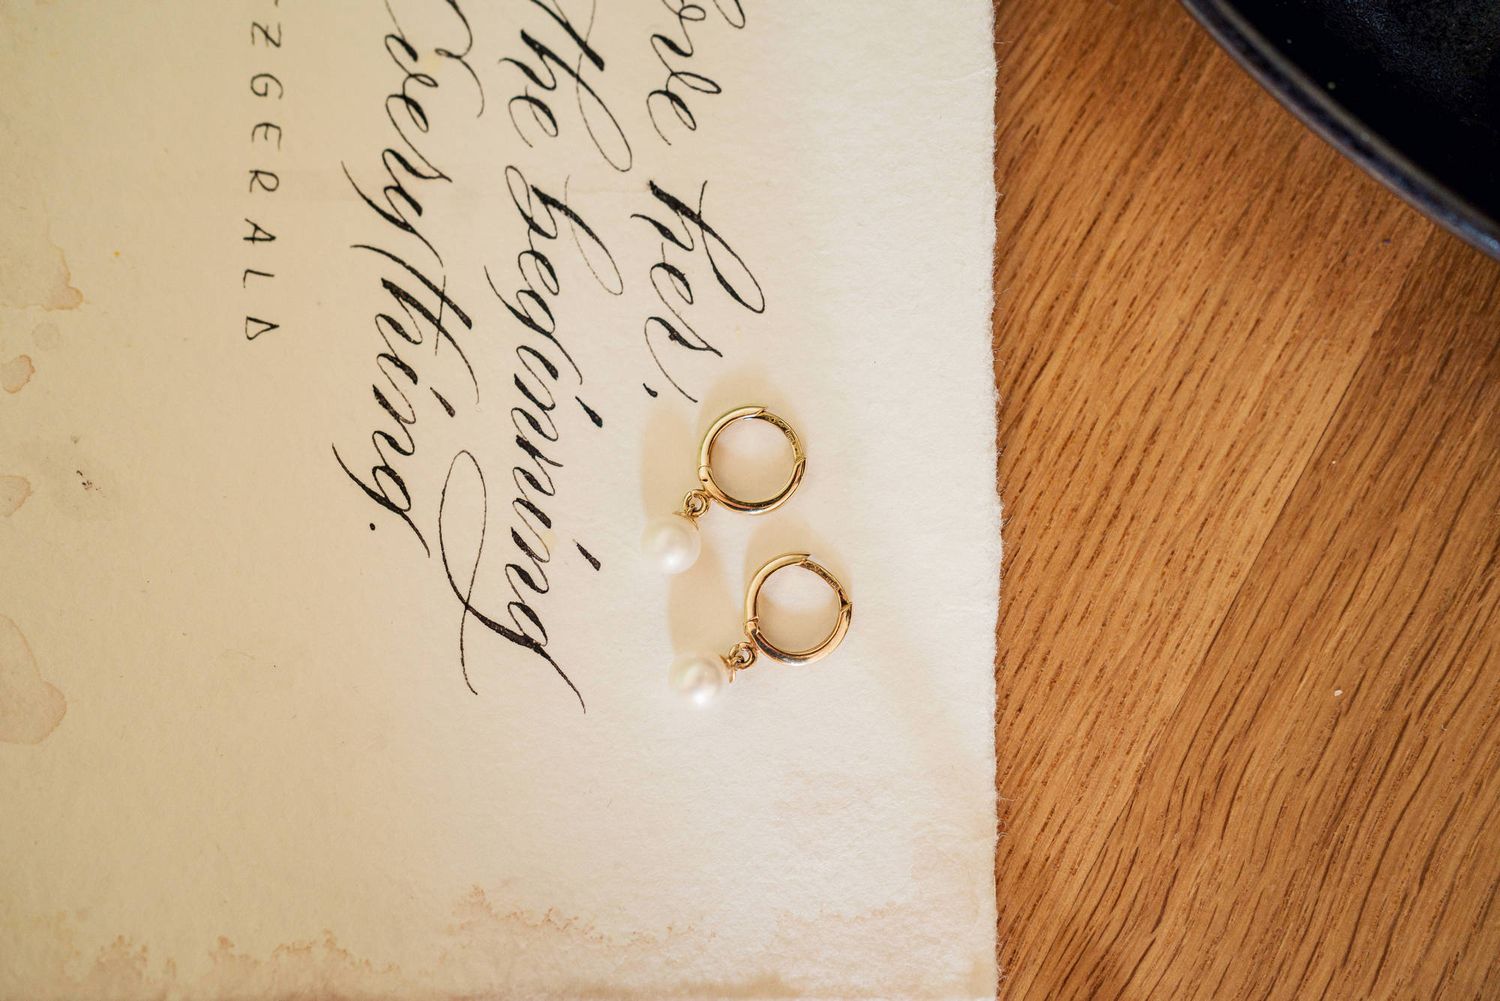 ove her,
the beginning
everything.
ZGERALD